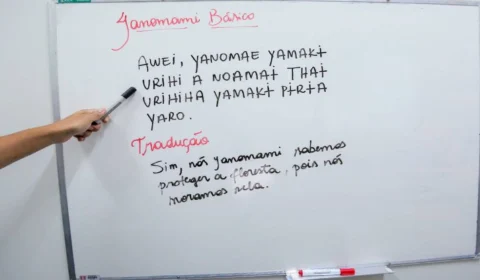 Yanomami Básico
AWEI, YANOMAE YAMAKɨ
URIHI A NOAMAI THAI
URIHIHA YAMAKɨ PɨRɨA
YARO.
Tradução
Sim, nós yanomami sabemos
proteger a floresta, pois nós
moramos nela.